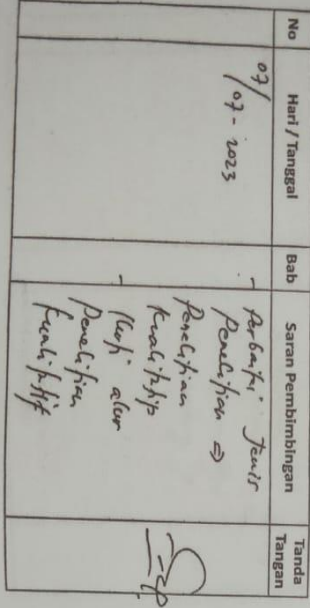 No
Hari / Tanggal
Bab
Saran Pembimbingan
Tanda
Tangan
07/
07-2023
- Perbaiki Jenis
Penelitian ⇒
Penelitian
Kualitatif
- Ikuti alur
Penelitian
Kualitatif